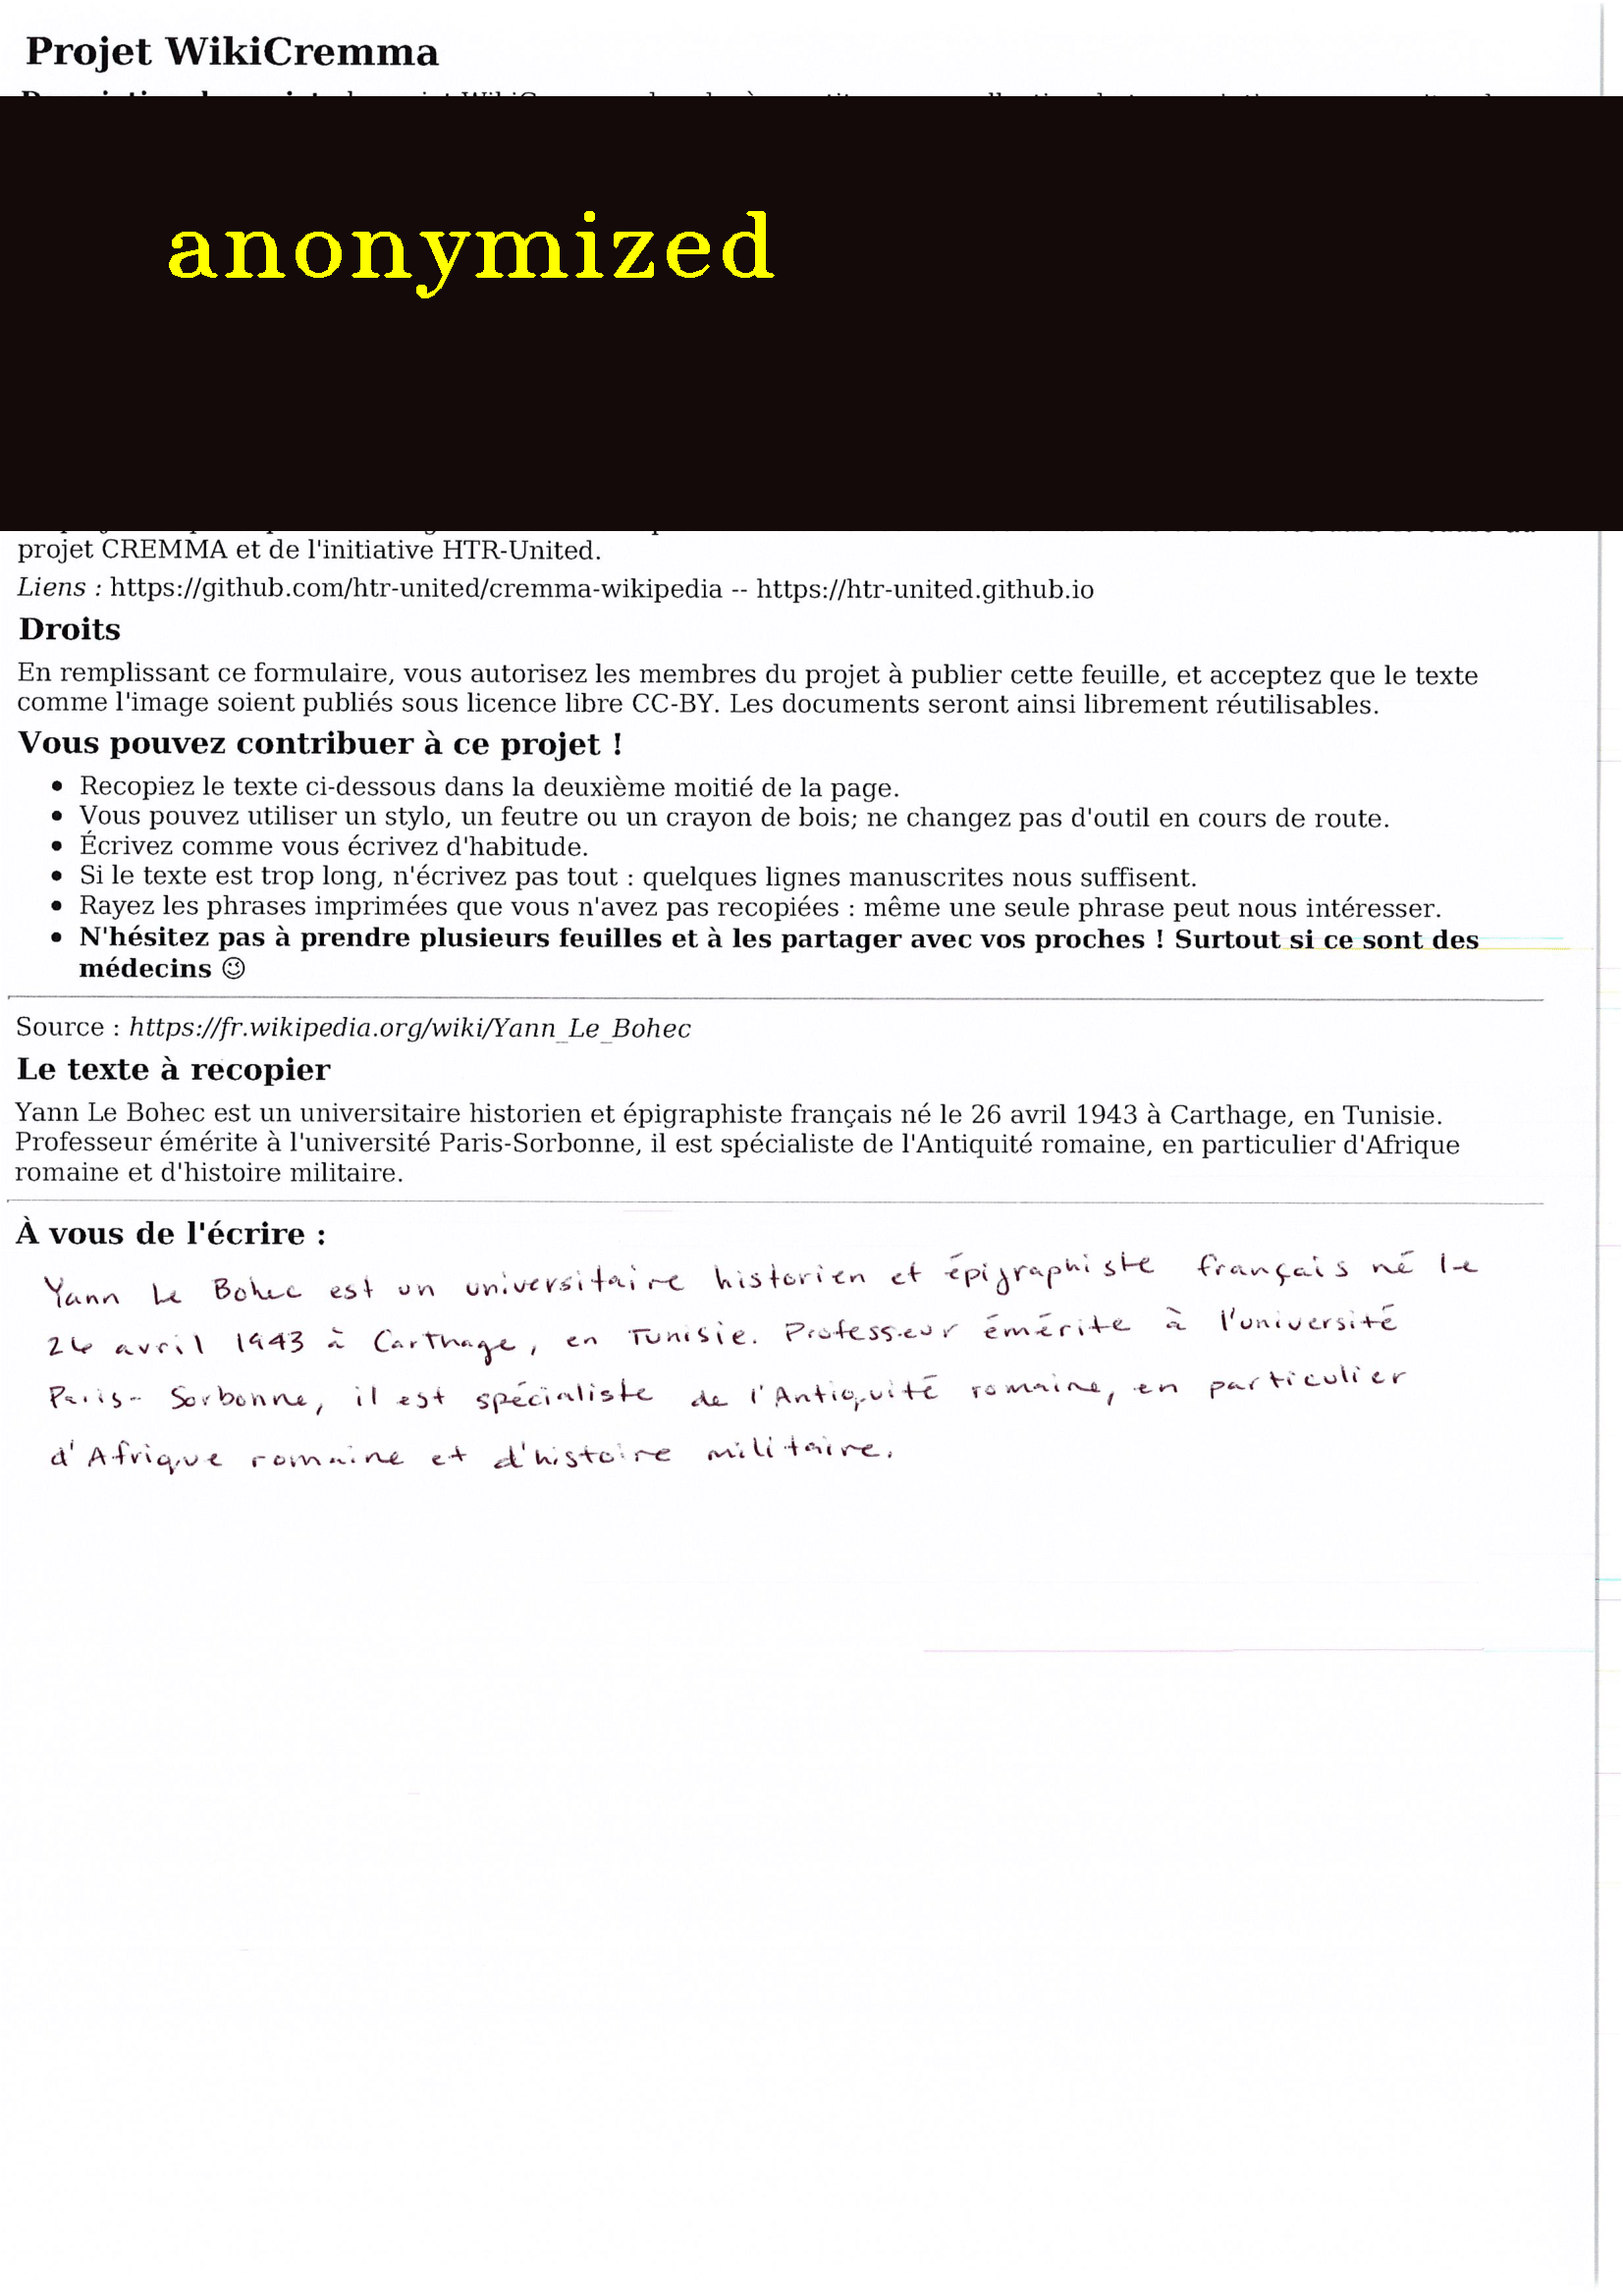 Projet WikiCremma
anonymized
projet CREMMA et de l'initiative HTR-United.
Liens : https://github.com/htr-united/cremma-wikipedia -- https://htr-united.github.io
Droits
En remplissant ce formulaire, vous autorisez les membres du projet à publier cette feuille, et acceptez que le texte
comme l'image soient publiés sous licence libre CC-BY. Les documents seront ainsi librement réutilisables.
Vous pouvez contribuer à ce projet !
• Recopiez le texte ci-dessous dans la deuxième moitié de la page.
• Vous pouvez utiliser un stylo, un feutre ou un crayon de bois; ne changez pas d'outil en cours de route.
• Écrivez comme vous écrivez d'habitude.
• Si le texte est trop long, n'écrivez pas tout : quelques lignes manuscrites nous suffisent.
• Rayez les phrases imprimées que vous n'avez pas recopiées : même une seule phrase peut nous intéresser.
• N'hésitez pas à prendre plusieurs feuilles et à les partager avec vos proches ! Surtout si ce sont des
médecins ☺
Source : https://fr.wikipedia.org/wiki/Yann_Le_Bohec
Le texte à recopier
Yann Le Bohec est un universitaire historien et épigraphiste français né le 26 avril 1943 à Carthage, en Tunisie.
Professeur émérite à l'université Paris-Sorbonne, il est spécialiste de l'Antiquité romaine, en particulier d'Afrique
romaine et d'histoire militaire.
À vous de l'écrire :
Yann Le Bohec est un universitaire historien et épigraphiste français né le
26 avril 1943 à Carthage, en Tunisie. Professeur émérite à l'université
Paris-Sorbonne, il est spécialiste de l'Antiquité romaine, en particulier
d'Afrique romaine et d'histoire militaire.